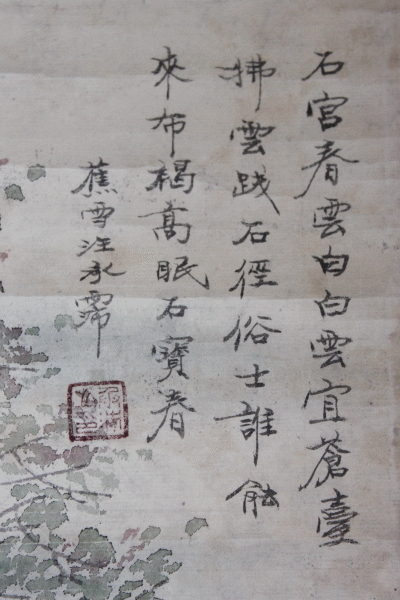 石宮春雲白白雲宜蒼臺
拂雲践石徑俗士誰能
來布褐髙眠石寶春
蕉雪汪承霈